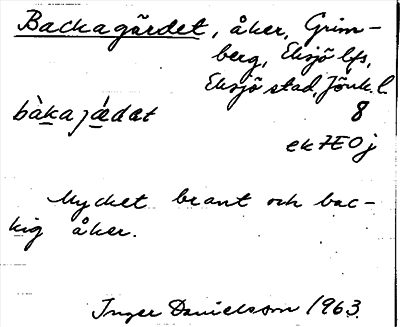 Backagärdet, åker, Grim-
berg, Eksjö lfs,
Eksjö stad, Jönk. l.
bàkajǽdæt 8
ek 7E0j
Mycket brant och bac-
kig åker.
Inger Danielsson 1963.